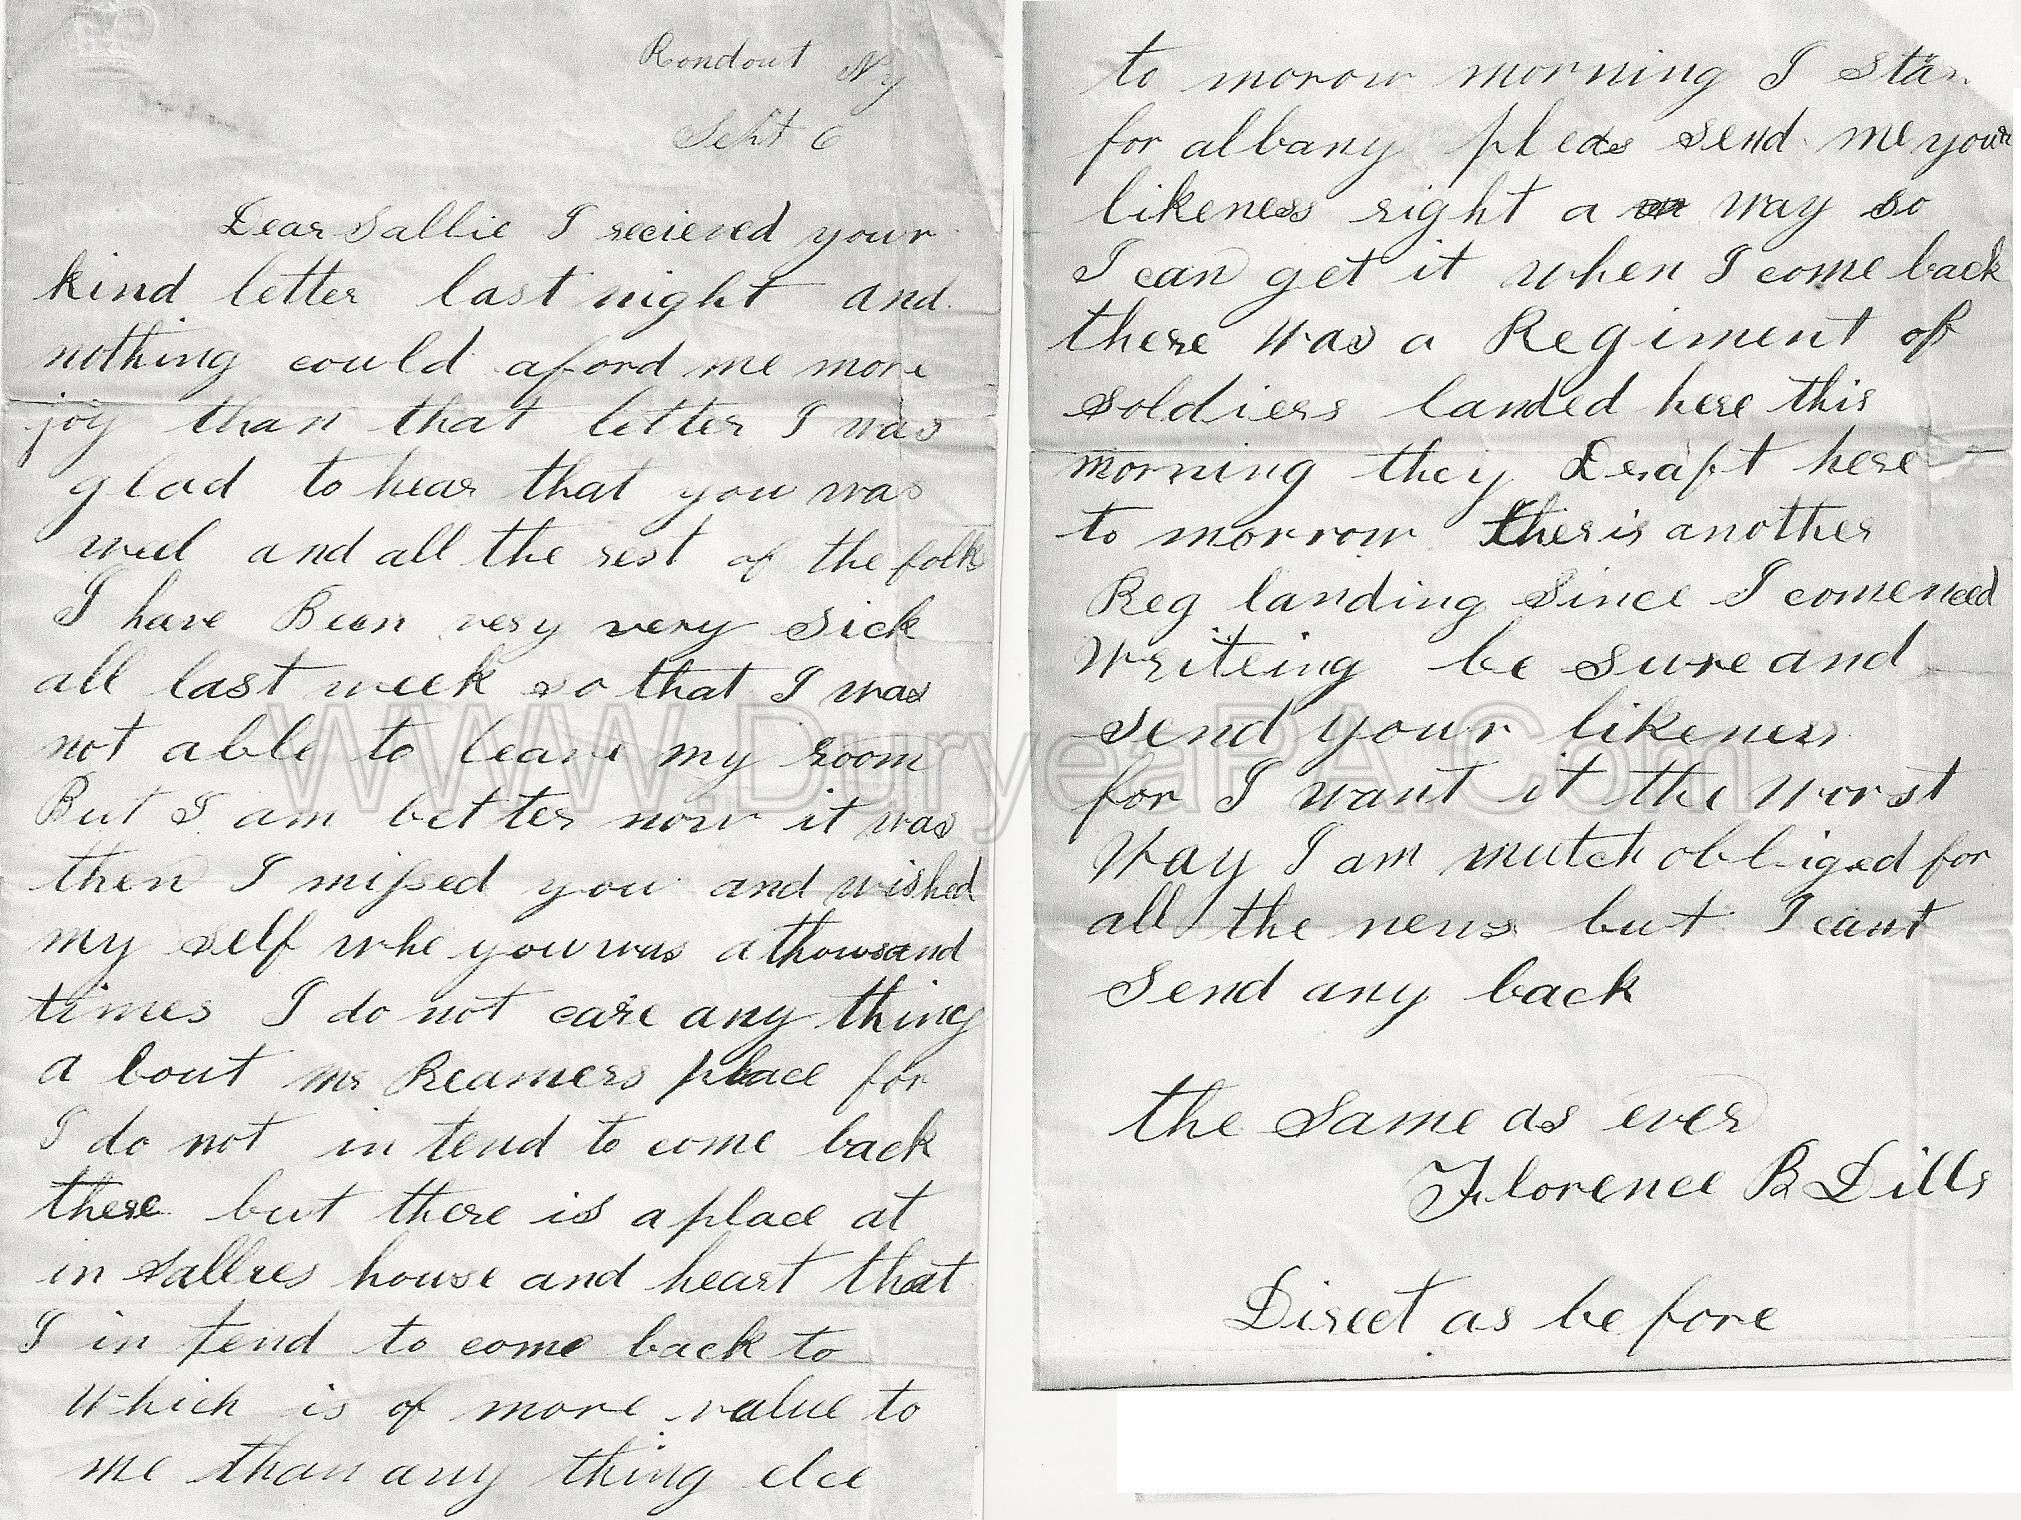 Rondout Ny
Sept 6
Dear Sallie I recieved your
kind letter last night and
nothing could aford me more
joy than that letter I was
glad to hear that you was
well and all the rest of the folks
I have Been very very sick
all last week so that I was
not able to leave my room
But I am better now it was
then I missed you and wished
my self whe you was a thousand
times I do not care any thing
a bout mr Reamers place for
I do not in tend to come back
there but there is a place at
in Sallies house and heart that
I in tend to come back to
Which is of more value to
me than any thing elce
to morow morning I star
for albany pleas send me your
likeness right a way so
I can get it when I come back
there was a Regiment of
soldiers landed here this
morning they Draft here
to morrow ther is another
Reg landing since I comenced
Writeing be sure and
send your likeness
for I want it the worst
Way I am mutch obliged for
all the news but I cant
Send any back
the same as ever
Florence B Dills
Direct as be fore
WWW.DuryeaPA.Com